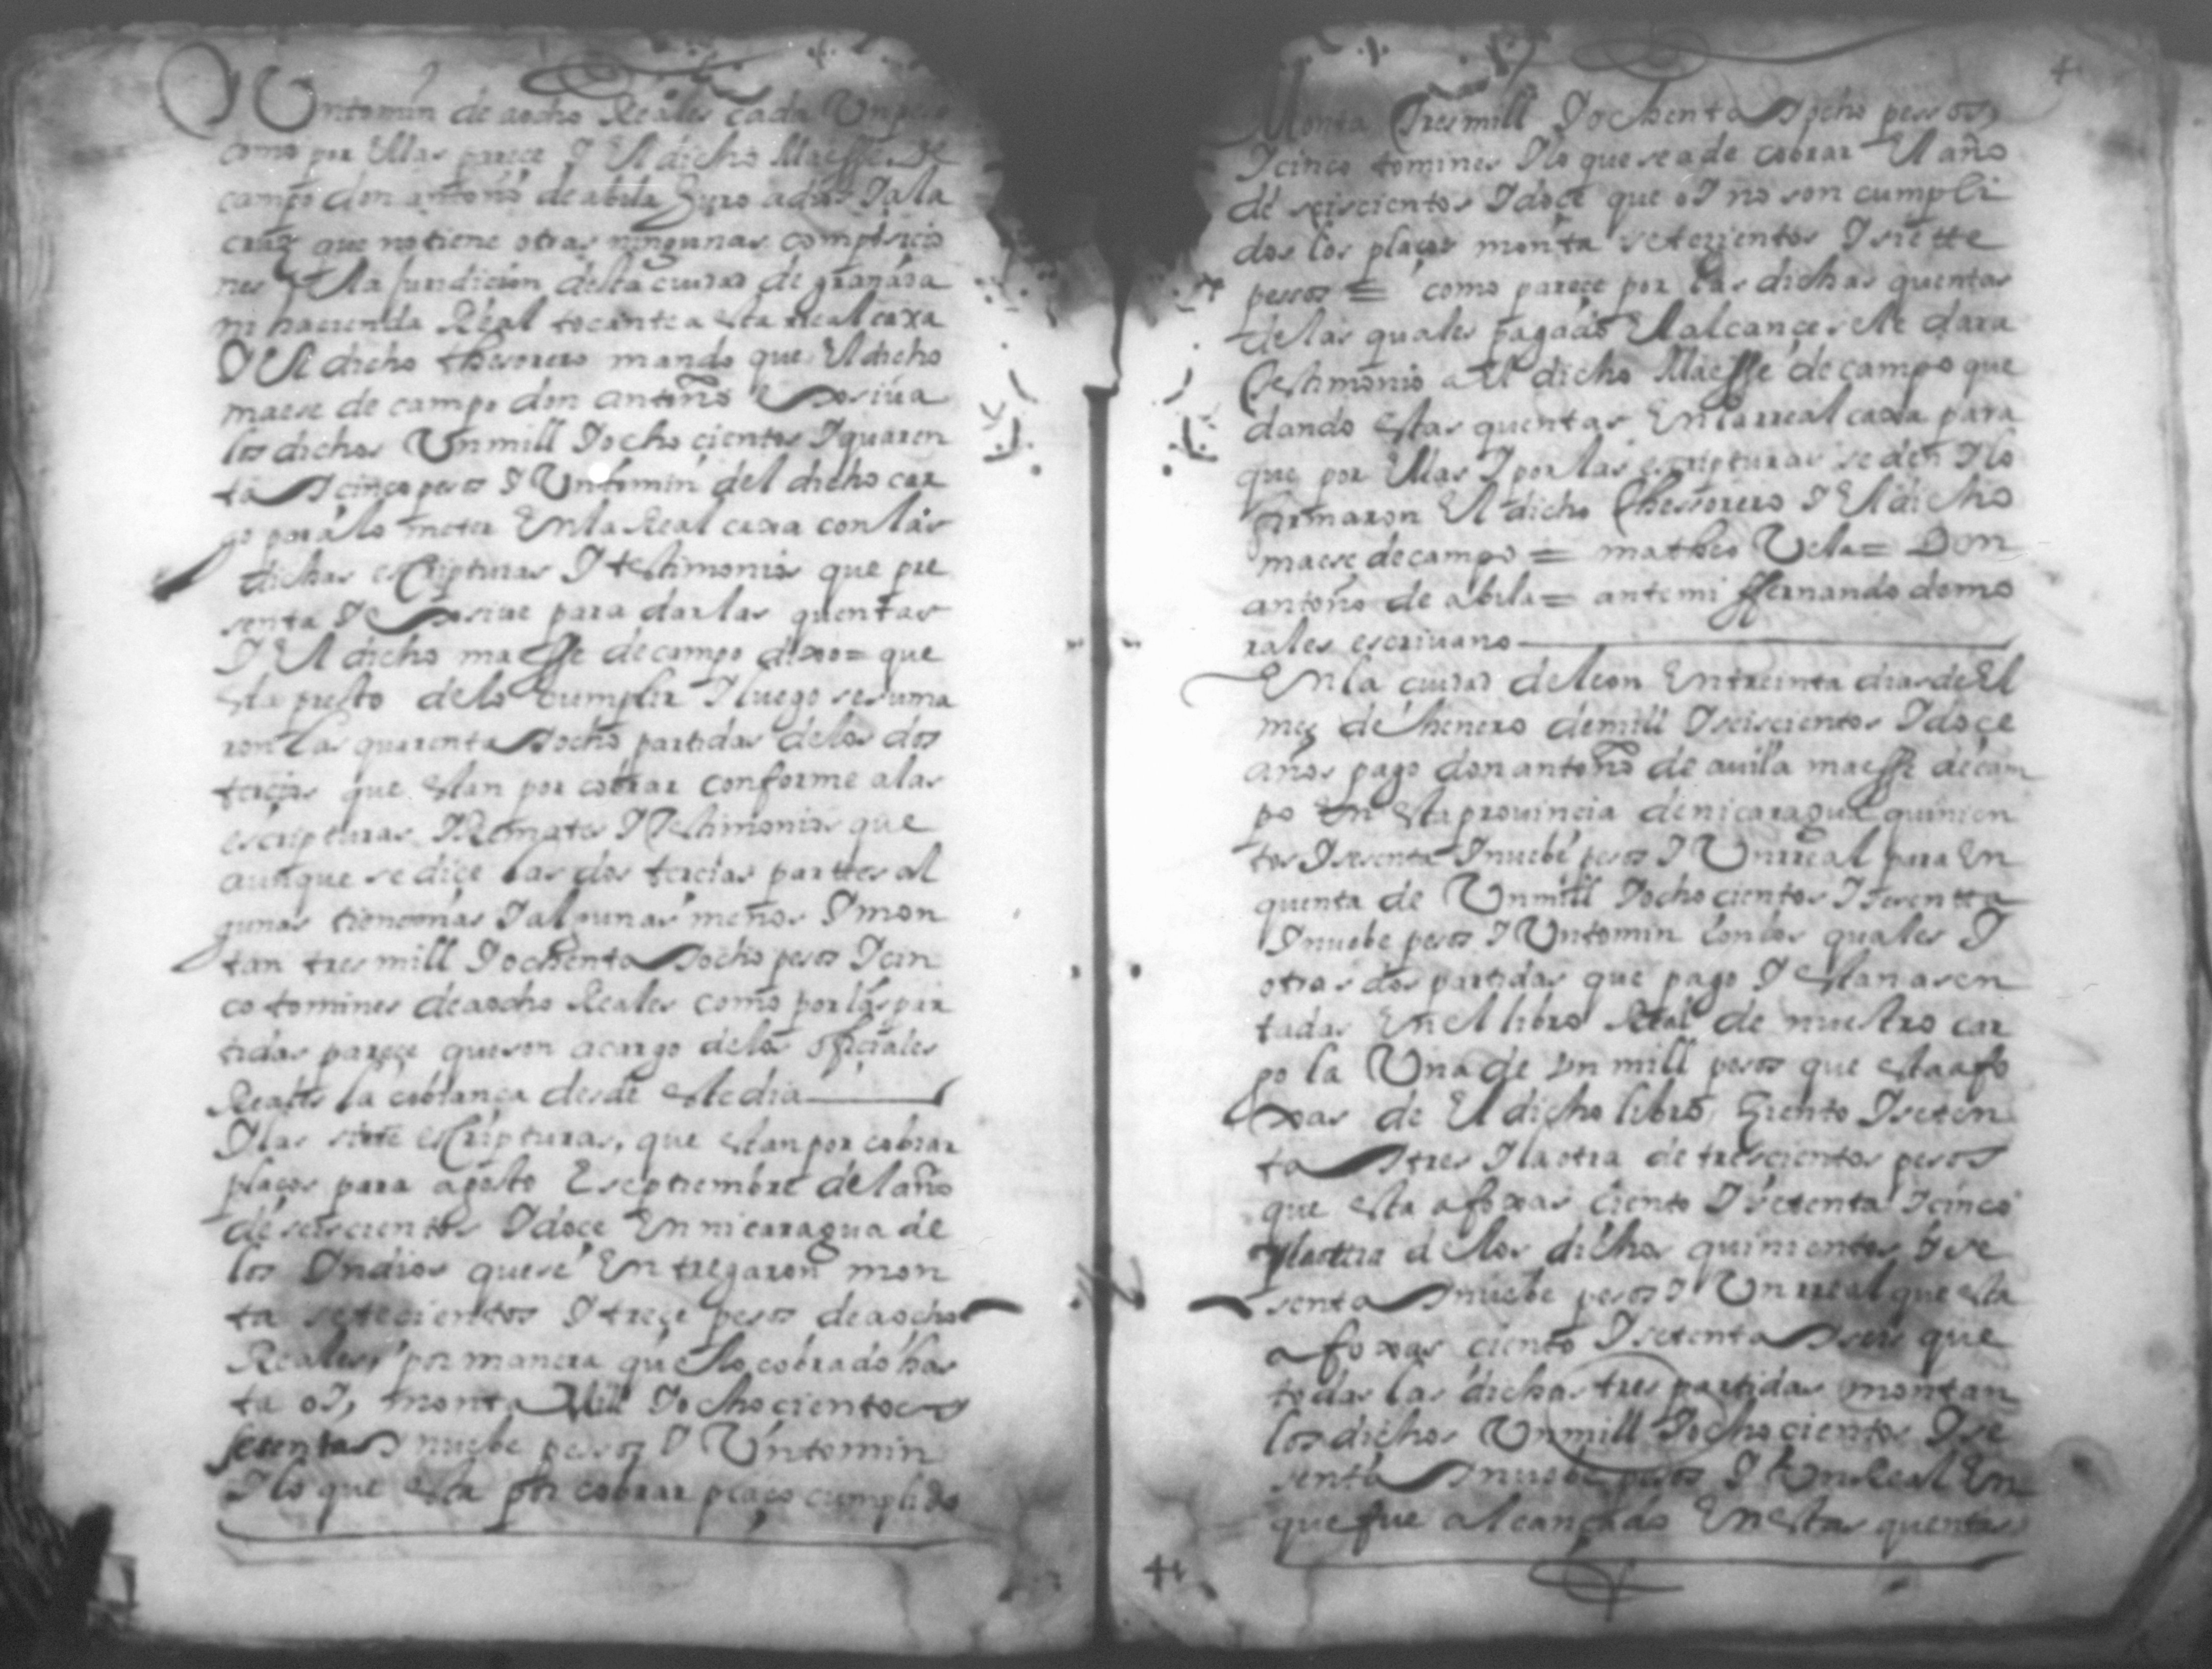 I Un tomin de a ocho Reales cada Un peso
como por Ellas parece I El dicho Maesse de
campo don antoño de abila Juro a dios I a la
cruz que no tiene otras ningunas
nes I En la juridicion desta ciudad de granada
mi hacienda Real tocante a esta real caxa
I El dicho thesorero mando que El dicho
maese de campo don antoño Exsosiua
los dichos Un mill I ocho cientos I quaren
ta I cinco pesos I Un tomin del dicho car
go para lo meter En la Real caxa con las
dichas escripturas I testimonios que pre
senta I para dar las quentas
I El dicho maesse de campo dixo = que
esta presto de lo cumplir I luego se suma
ron las quarenta I ocho partidas de los dos
tercios que estan por cobrar conforme a las
escripturas I Remates I testimonios que
aunque se dice las dos tercias parttes al
gunas tienen mas I algunas menos I mon
tan tres mill I ochenta I ocho pesos I cin
co tomines de a ocho Reales como por las par
tidas parece que son a cargo de los oficiales
Reales la cobrança desde este dia
I las siete escripturas, que estan por cobrar
plaços para agosto E septiembre del año
de seiscientos I doce En nicaragua de
los Indios que se Entregaron mon
ta setecientos I treçe pesos de a ocho
Reales, por manera que lo cobrado has
ta oI, monta Mill I ocho cientos I
sesenta I nuebe pessos I Un tomin
I lo que esta por cobrar plaço cumplido
Monta tres mill I ochenta I ocho pessos
I cinco tomines I lo que se a de cobrar El año
de seiscientos I doce que oI no son cumpli
dos los plaços monta setecientos I siette
pessos = como pareçe por las dichas quentas
de las quales pagado El alcançe se le dara
testimonio a El dicho Maesse de campo que
dando estas quentas En la rreal caxa para
que por Ellas I por las escripturas se den I lo
firmaron El dicho thessorero I El dicho
maese de campo = matheo Vela = Don
antoño de abila = ante mi ffernando de mo
rales escriuano
En la ciudad de leon En treinta dias de El
mes de henero de mill I seiscientos I doçe
años pago don antoño de auila maesse de cam
po En esta prouincia de nicaragua quinien
tos I sesenta I nuebe pesos I Un rreal para En
quenta de Un mill I ocho cientos I sesentta
I nuebe pesos I Un tomin con los quales I
otras dos partidas que pago I estan asen
tadas En el libro Real de nuestro car
go la Una de Un mill pesos que esta a fo
xas de El dicho libro, ciento I seten
ta I tres I la otra de trescientos pesos
que esta a foxas ciento I setenta I cinco
I la ottra de los dichos quinientos I se
senta I nuebe pesos I Un rreal que esta
a foxas ciento I setenta I seis que
todas las dichas tres partidas montan
los dichos Un mill I ocho cientos I se
senta I nuebe pesos I Un Real En
que fue alcançado En estas quentas